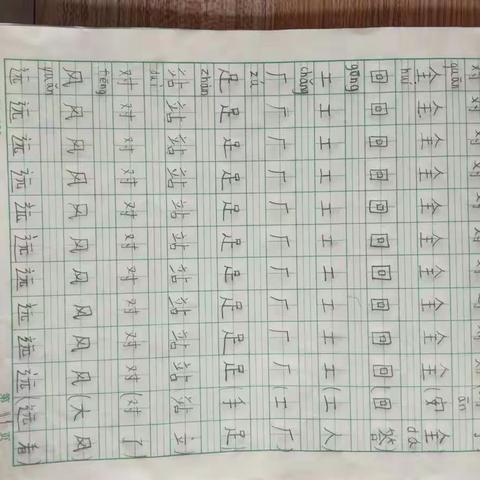 quán ān
全全全全全全全全全全(安全)
huí dá
回回回回回回回回回回(回答)
gōng
工工工工工工工工工工(工人)
chǎng
厂厂厂厂厂厂厂厂厂厂(工厂)
zú
足足足足足足足足足足(手足)
zhàn
站站站站站站站站站站(站立)
duì
对对对对对对对对对对(对了)
fēng
风风风风风风风风风风(大风)
yuǎn
远远远远远远远远远远(远看)
第 页